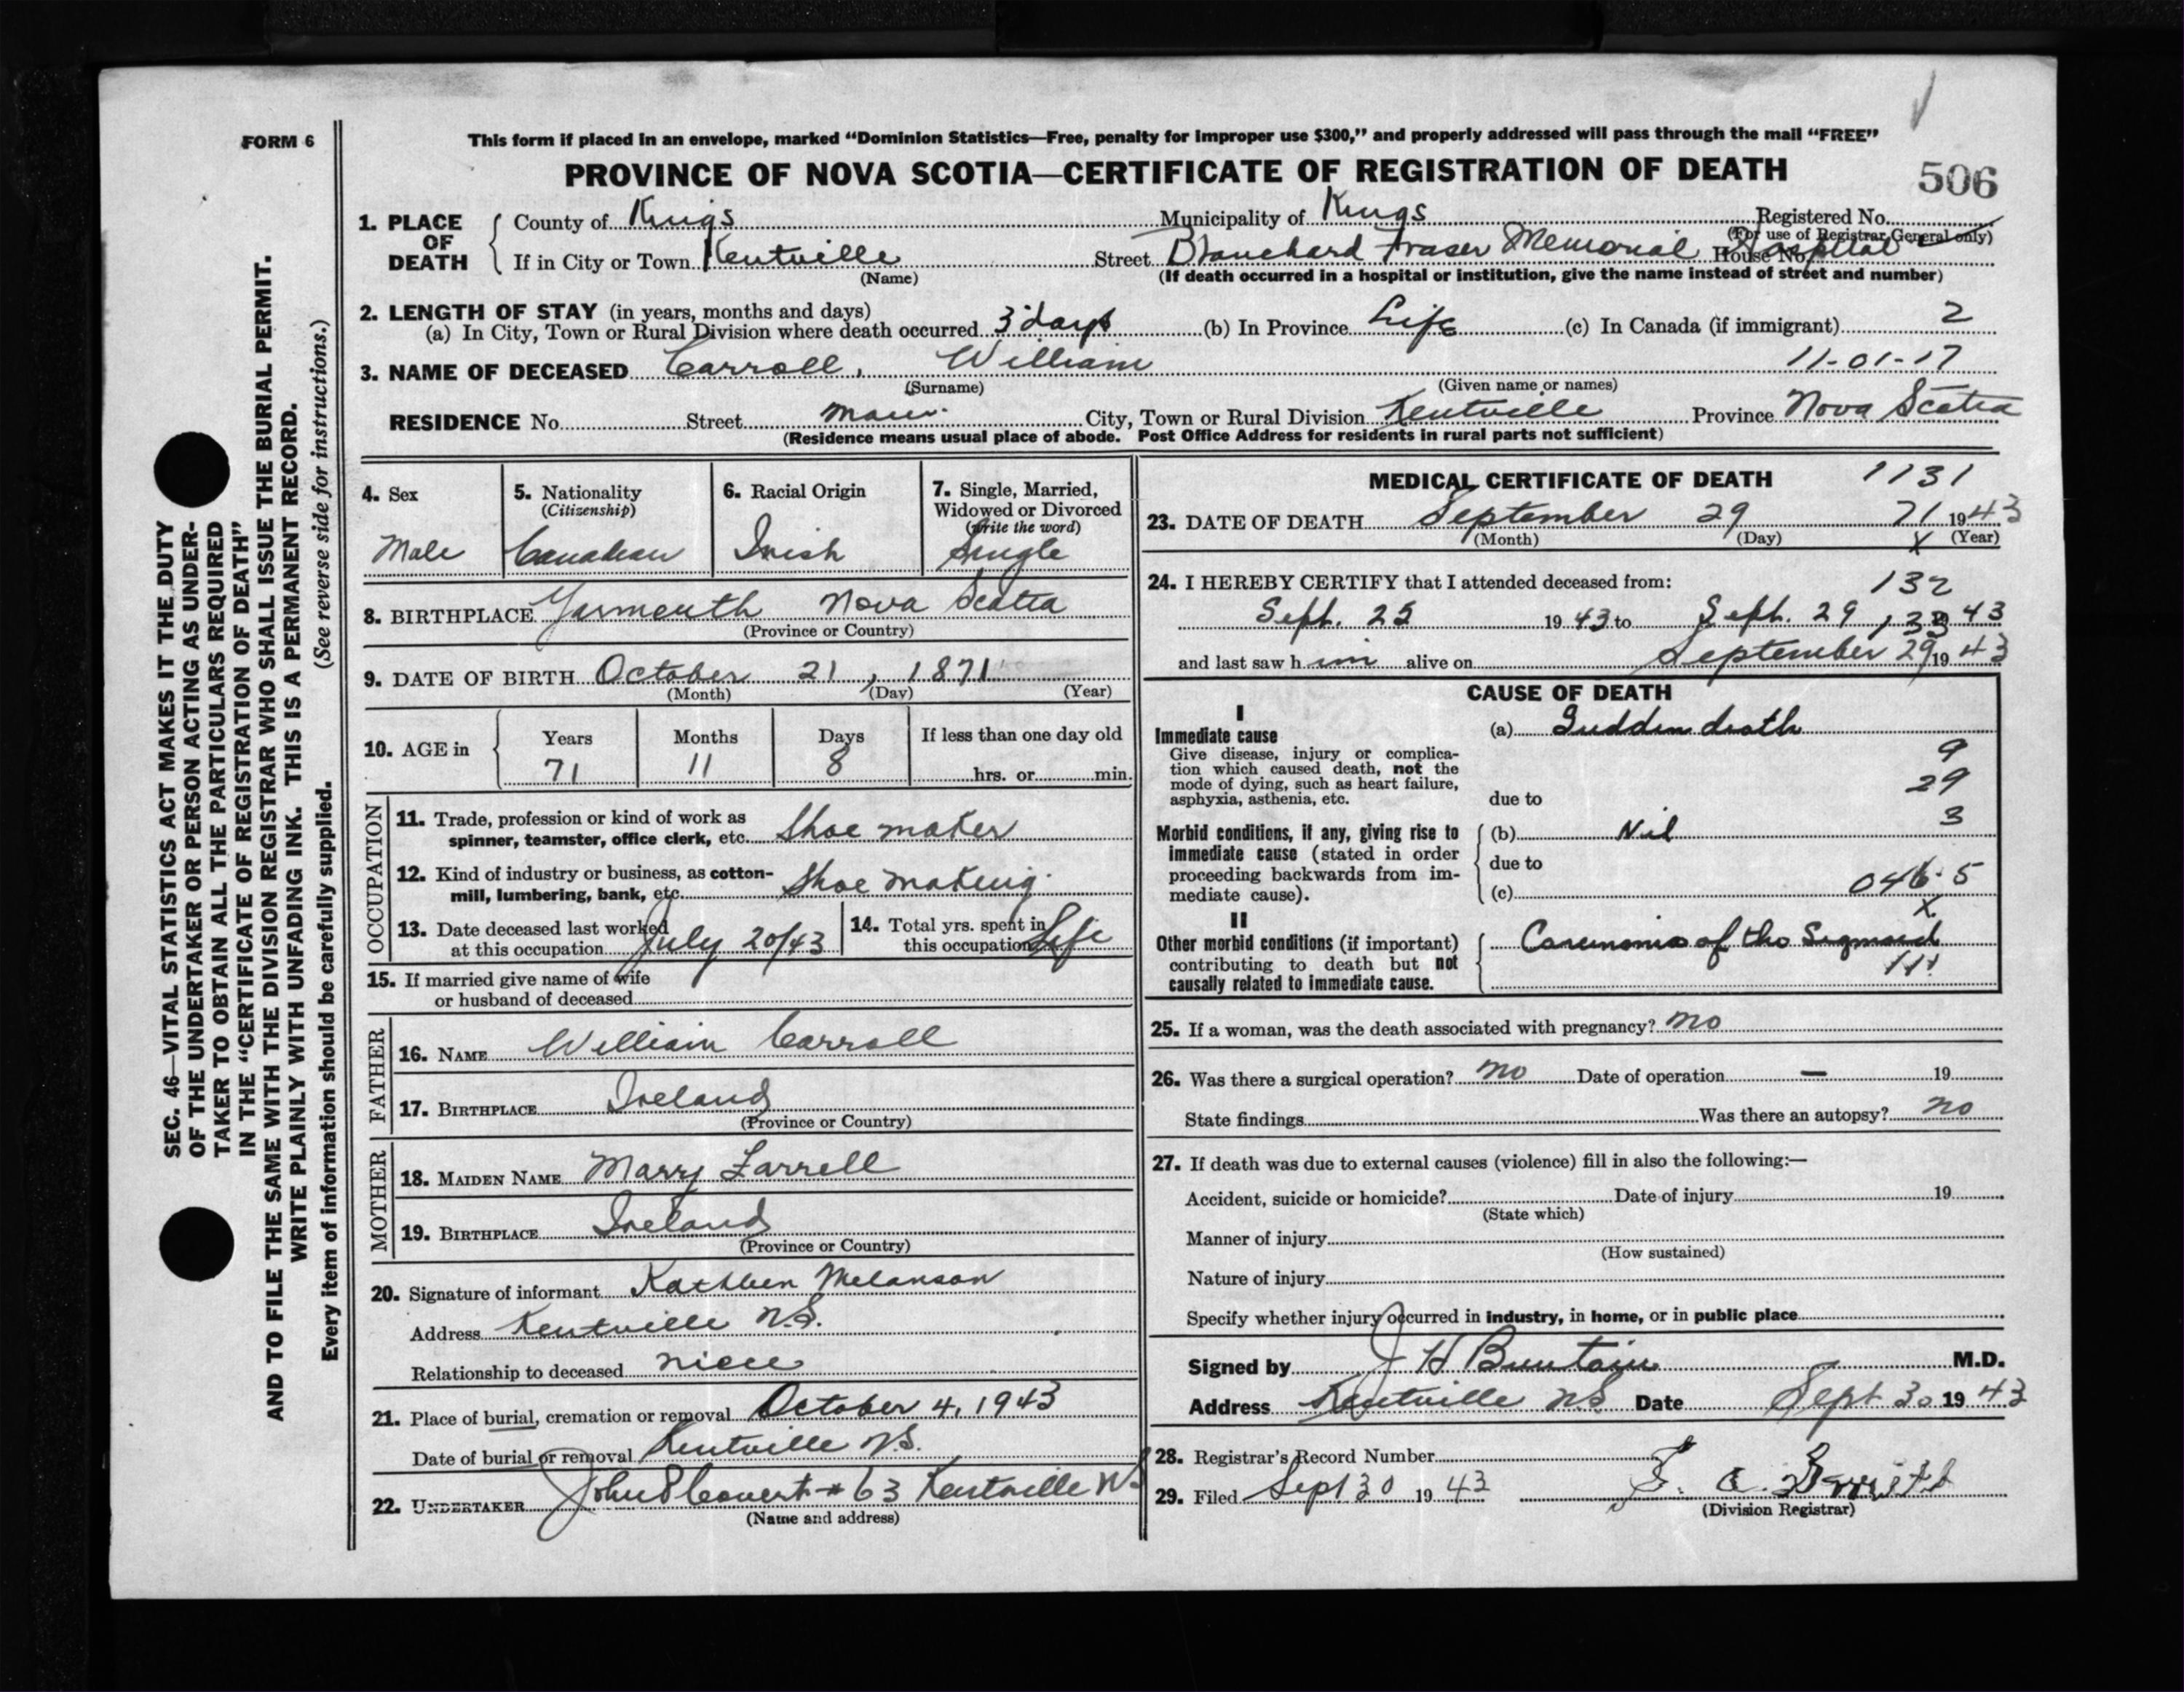 FORM 6
This form if placed in an envelope, marked “Dominion Statistics—Free, penalty for improper use $300,” and properly addressed will pass through the mail “FREE”
PROVINCE OF NOVA SCOTIA—CERTIFICATE OF REGISTRATION OF DEATH
506
1. PLACE OF DEATH
County of Kings Municipality of Kings Registered No.
(For use of Registrar General only)
If in City or Town Kentville Street Blanchard Fraser Memorial Hospital House No.
(Name) (If death occurred in a hospital or institution, give the name instead of street and number)
2. LENGTH OF STAY (in years, months and days)
(a) In City, Town or Rural Division where death occurred 3 days (b) In Province Life (c) In Canada (if immigrant) 2
3. NAME OF DECEASED Carroll, William 11-01-17
(Surname) (Given name or names)
RESIDENCE No. Street Main City, Town or Rural Division Kentville Province Nova Scotia
(Residence means usual place of abode. Post Office Address for residents in rural parts not sufficient)
4. Sex
Male
5. Nationality
(Citizenship)
Canadian
6. Racial Origin
Irish
7. Single, Married,
Widowed or Divorced
(write the word)
Single
8. BIRTHPLACE Yarmouth Nova Scotia
(Province or Country)
9. DATE OF BIRTH October 21, 1871
(Month) (Day) (Year)
10. AGE in
Years Months Days If less than one day old
71 11 8 hrs. or min.
OCCUPATION
11. Trade, profession or kind of work as
spinner, teamster, office clerk, etc. Shoe maker
12. Kind of industry or business, as cotton-
mill, lumbering, bank, etc. Shoe making
13. Date deceased last worked
at this occupation July 20/43
14. Total yrs. spent in
this occupation Life
15. If married give name of wife
or husband of deceased
FATHER
16. NAME William Carroll
17. BIRTHPLACE Ireland
(Province or Country)
MOTHER
18. MAIDEN NAME Marry Farrell
19. BIRTHPLACE Ireland
(Province or Country)
20. Signature of informant Kathleen Melanson
Address Kentville N.S.
Relationship to deceased niece
21. Place of burial, cremation or removal October 4, 1943
Date of burial or removal Kentville N.S.
22. UNDERTAKER John S Covert #63 Kentville NS
(Name and address)
MEDICAL CERTIFICATE OF DEATH 1131
23. DATE OF DEATH September 29 71 1943
(Month) (Day) X (Year)
24. I HEREBY CERTIFY that I attended deceased from: 132
Sept. 25 1943 to Sept. 29, 1943
and last saw him alive on September 29 1943
CAUSE OF DEATH
I
Immediate cause
Give disease, injury or complica-
tion which caused death, not the
mode of dying, such as heart failure,
asphyxia, asthenia, etc.
(a) Sudden death
9
29
due to
3
Morbid conditions, if any, giving rise to
immediate cause (stated in order
proceeding backwards from im-
mediate cause).
(b) Nil
due to
(c) 046.5
X
II
Other morbid conditions (if important)
contributing to death but not
causally related to immediate cause.
Carcinoma of the Sigmoid
25. If a woman, was the death associated with pregnancy? no
26. Was there a surgical operation? no Date of operation — 19
State findings Was there an autopsy? no
27. If death was due to external causes (violence) fill in also the following:—
Accident, suicide or homicide? Date of injury 19
(State which)
Manner of injury
(How sustained)
Nature of injury
Specify whether injury occurred in industry, in home, or in public place
Signed by J H Buntain M.D.
Address Kentville NS Date Sept 30 1943
28. Registrar's Record Number
29. Filed Sept 30 1943
(Division Registrar)
SEC. 46—VITAL STATISTICS ACT MAKES IT THE DUTY
OF THE UNDERTAKER OR PERSON ACTING AS UNDER-
TAKER TO OBTAIN ALL THE PARTICULARS REQUIRED
IN THE “CERTIFICATE OF REGISTRATION OF DEATH”
AND TO FILE THE SAME WITH THE DIVISION REGISTRAR WHO SHALL ISSUE THE BURIAL PERMIT.
WRITE PLAINLY WITH UNFADING INK. THIS IS A PERMANENT RECORD.
Every item of information should be carefully supplied. (See reverse side for instructions.)